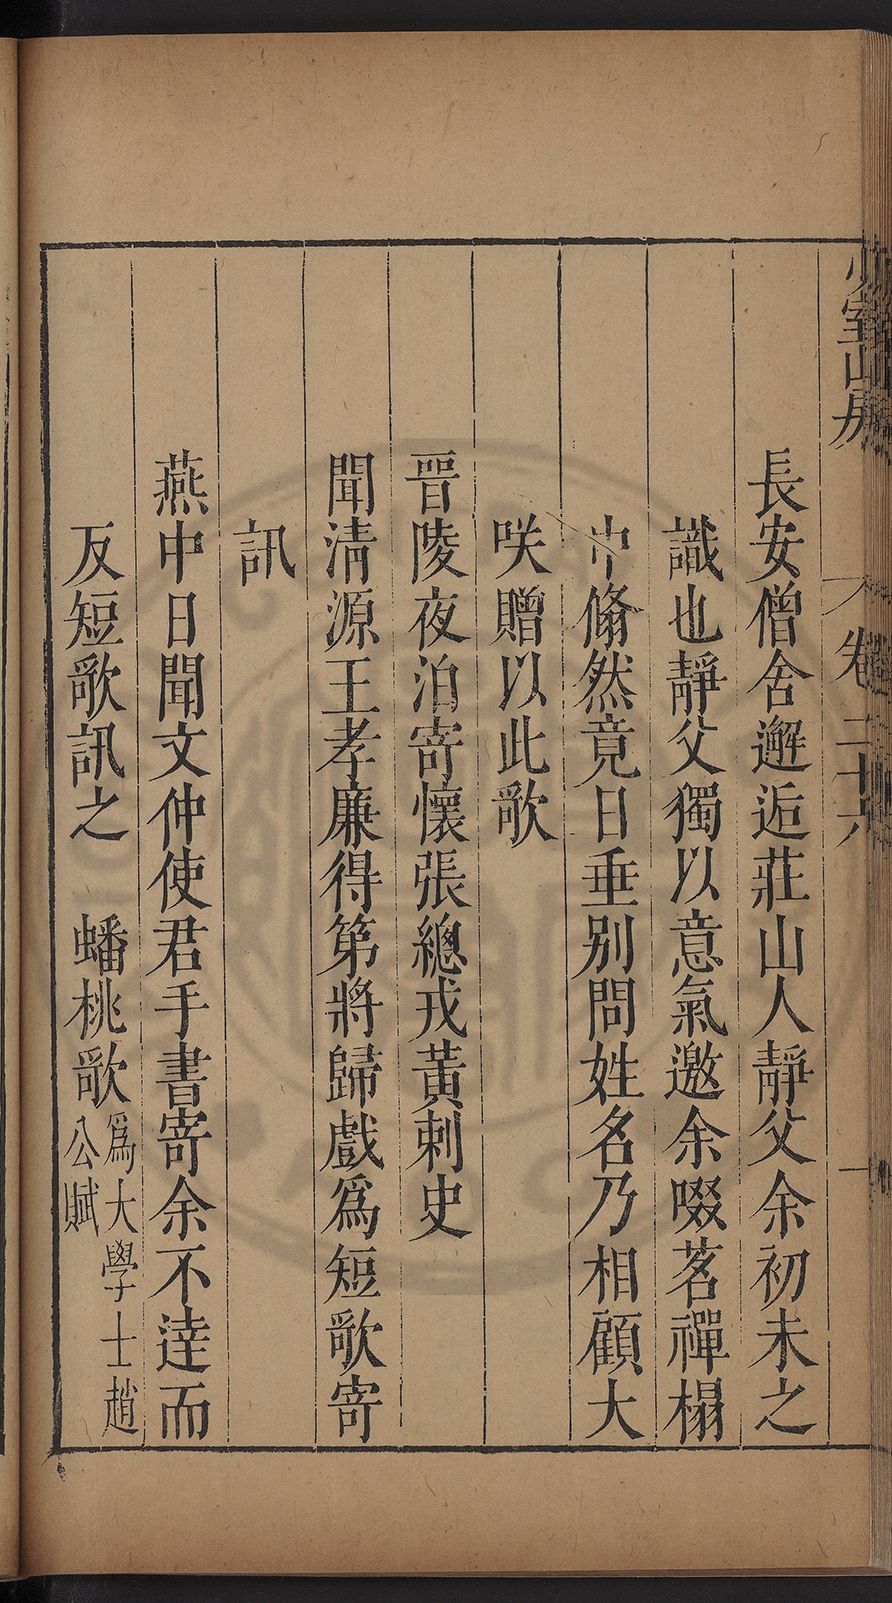 少室山房
卷二十六
一
長安僧舍邂逅莊山人靜父余初未之
識也靜父獨以意氣邀余啜茗禪榻
中翛然竟日垂别問姓名乃相顧大
咲贈以此歌
晉陵夜泊寄懷張總戎黃刺史
聞淸源王孝廉得第將歸戲爲短歌寄
訊
燕中日聞文仲使君手書寄余不逹而
反短歌訊之　蟠桃歌爲大學士趙
公賦